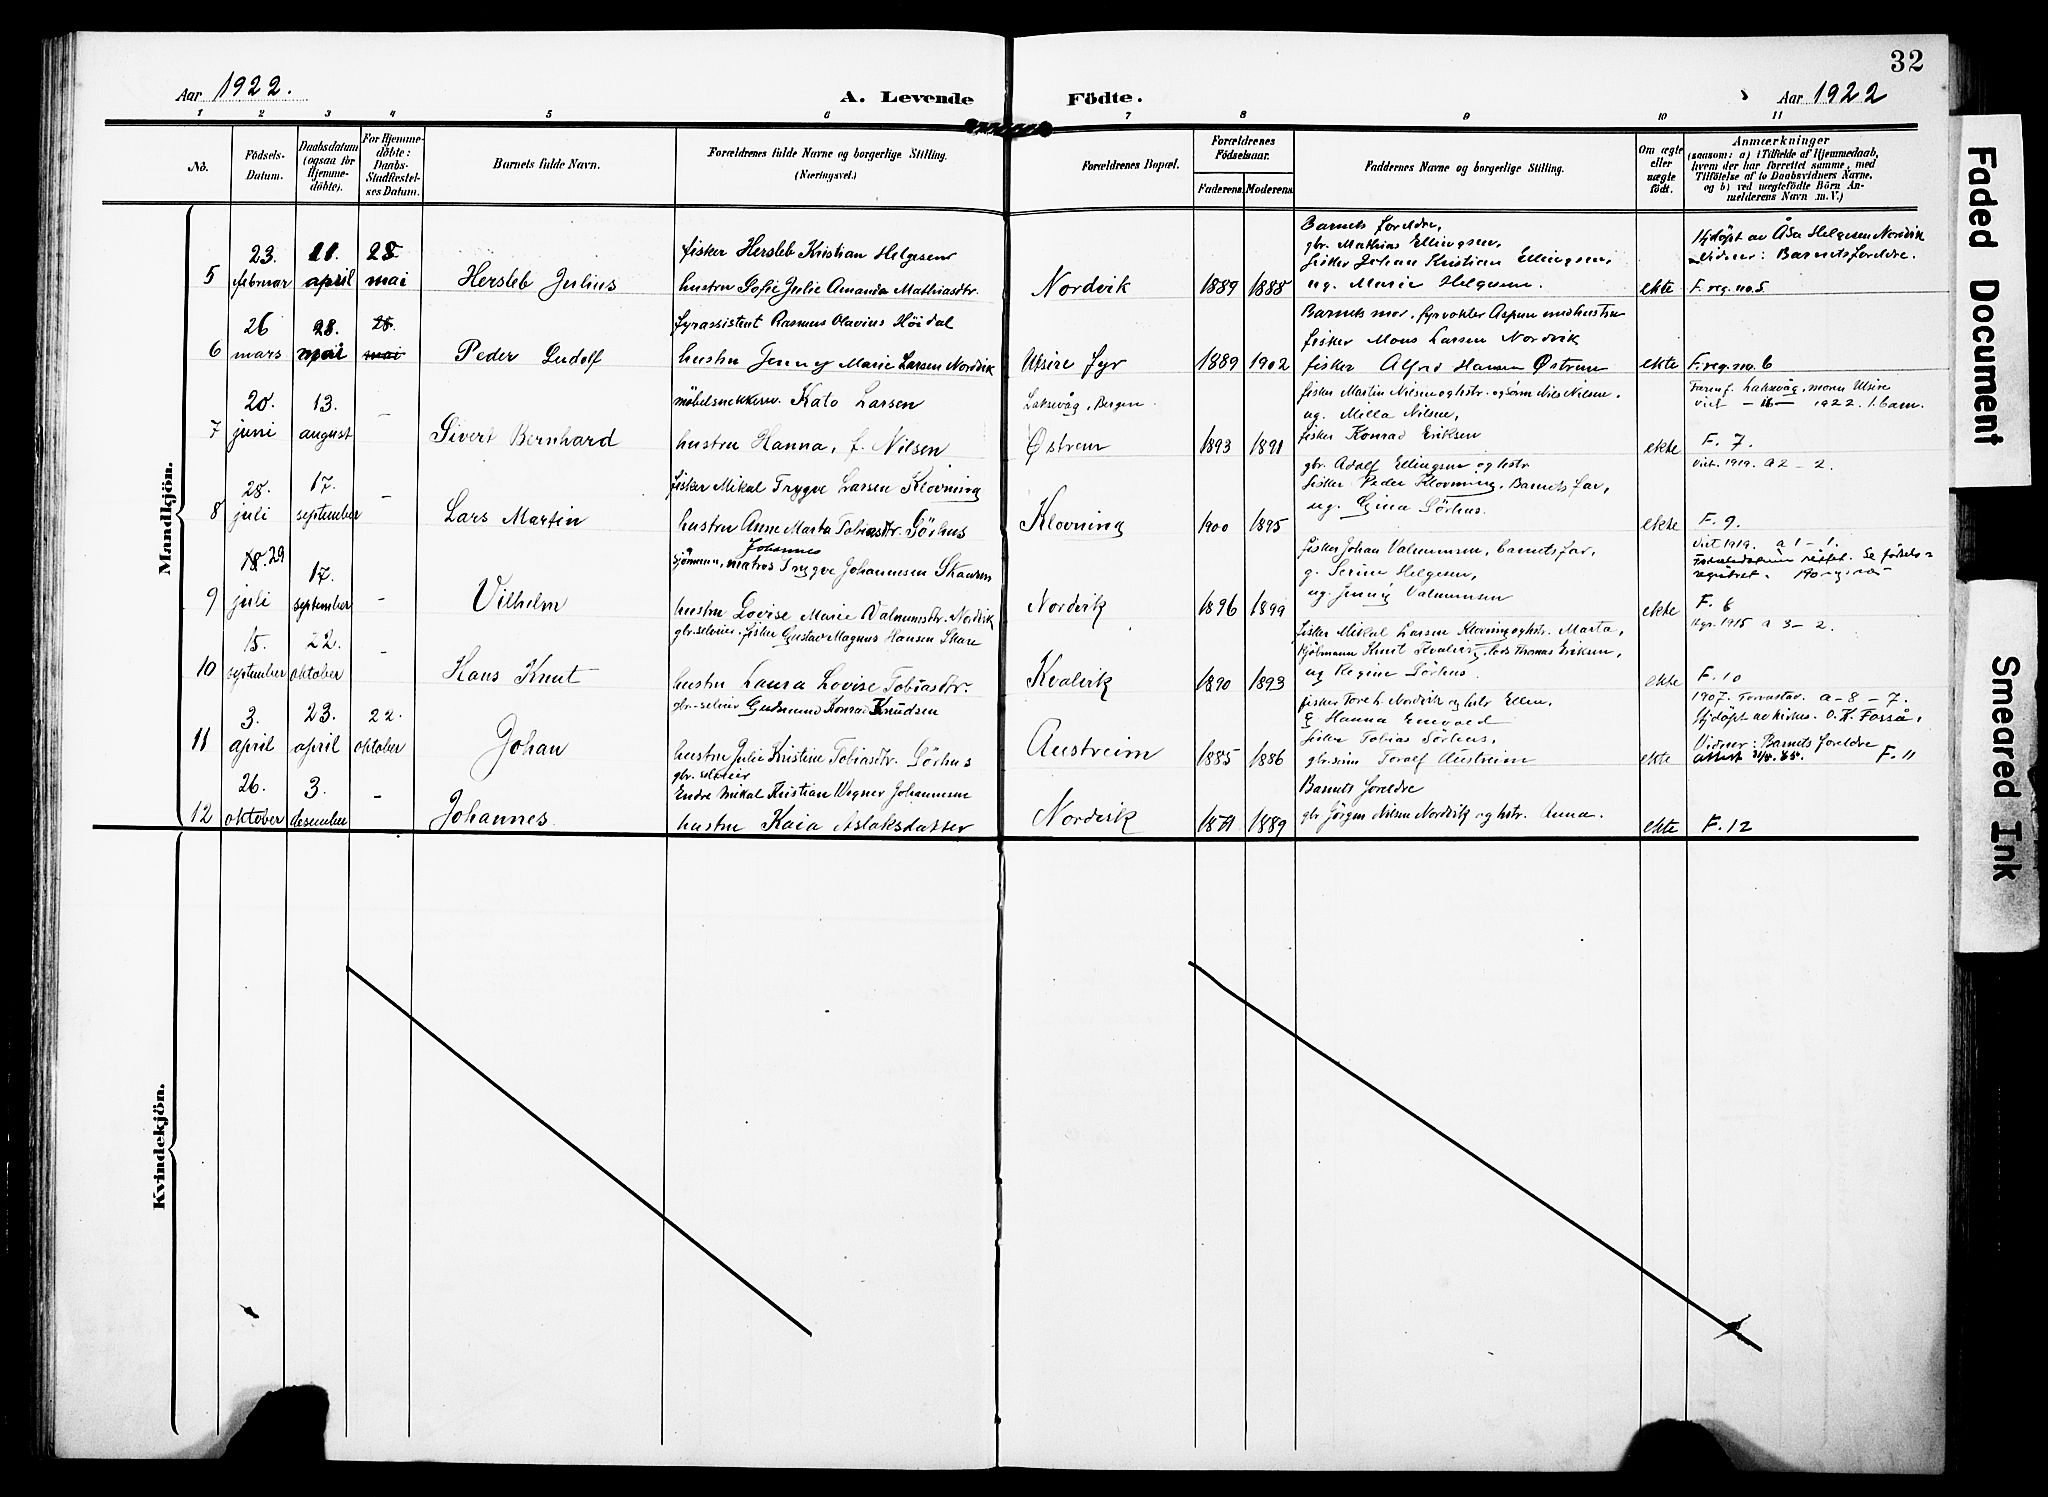 32
Aar 1922.
A. Levende Födte.
Aar 1922
1 2 3 4 5 6 7 8 9 10 11
No.
Födsels-Datum.
Daabsdatum (ogsaa for Hjemme-döbte).
For Hjemme-döbte: Daabs-Stadfæstel-ses Datum.
Barnets fulde Navn.
Forældrenes fulde Navne og borgerlige Stilling.
(Næringsvei.)
Forældrenes Bopæl.
Forældrenes Födselsaar.
Faderens. Moderens.
Faddernes Navne og borgerlige Stilling.
Om ægte eller uægte födt.
Anmærkninger
(saasom: a) i Tilfælde af Hjemmedaab,
hvem der har forrettet samme, med
Tilföielse af to Daabsvidners Navne,
og b) ved uægtefödte Börn An-
melderens Navn m. V.)
Mandkjön.
5 23. februar 21. april 28. mai Hersleb Julius
fisker Hersleb Kristian Helgesen
hustru Sofie Julie Amanda Mathiasdtr.
Nordvik 1889 1888
Barnets foreldre,
gbr. Mathias Ellingsen,
fisker Johan Kristian Ellingsen,
ug. Marie Helgesen.
ekte
Hjdöpt av Åsa Helgesen Nordvik
Vidner: Barnets foreldre.
F. reg. no. 5
6 26 mars 28. mai 28. mai Peder Ludolf
fyrassistent Rasmus Olavius Höidal
hustru Jenny Marie Larsen Nordvik
Utsire fyr 1889 1902
Barnets mor, fyrvokter Aspen med hustru
fisker Mons Larsen Nordvik
fisker Alfred Hansen Østrem
ekte F. reg. no. 6
7 20. juni 13. august - Sivert Bernhard
möbelsnekkersv. Kato Larsen
hustru Hanna, f. Nilsen
Laksevåg, Bergen.
Østrem 1893 1891
fisker Martin Nilsen og hstr. og sønn Nils Nilsen,
ug. Milla Nilsen,
fisker Konrad Eriksen
ekte
Faren f. Laksevåg, moren Utsire
viet - 16 - 1922. 1. barn.
F. 7.
8 28. juli 17. september - Lars Martin
fisker Mikal Trygve Larsen Klovning
hustru Anne Marta Tobiasdtr. Sörhus
Klovning 1900 1895
gbr. Adolf Ellingsen og hstr.
fisker Peder Klovning, Barnets far,
ug. Gina Sörhus.
ekte
viet. 1919. a 2 - 2.
F. 9.
9 18. 29 juli 17. september - Vilhelm
sjömann, matros Johannes Trygve Johannesen Skaaren
hustru Lovise Marie Valnumsdtr. Nordvik
Nordvik 1896 1899
fisker Johan Valnumsen, barnets far,
g. Serine Helgesen,
ug. Jenny Valnumsen
ekte
viet 1919. a 1 - 1.
Födselsdatum rettet. Se födsels-
registret.
F. 8
10 15. september 22. oktober - Hans Knut
gbr. selveier. fisker Gustav Magnus Hansen Skare
hustru Laura Lovise Tobiasdtr.
Kvalvik 1890 1893
fisker Mikal Larsen Klovning og hstr. Marta,
kjöbmann Knut Kvalvik, lods Thomas Eriksen,
ug Regine Sörhus.
ekte
1915 a 3 - 2.
F. 10
11 3. april 23. april 22. oktober Johan
gbr. selveier Gudmund Konrad Knudsen
hustru Julie Kristine Tobiasdtr. Sörhus
Austreim 1885 1886
fisker Tore h. Nordvik og hstr Ellen,
g Hanna
fisker Tobias Sörhus,
gbr. sönn Toralf Austreim
ekte
1907. Torvastav. a - 8 - 7.
Hjdöpt av kirkes. O. K. Fosså,
Vidner: Barnets foreldre
attest F. 11
12 26. oktober 3. desember - Johannes.
gbr. selveier
Endre Mikal Kristian Wegner Johannesen
hustru Kaia Aslaksdatter
Nordvik 1871 1889
Barnets foreldre
gbr Jörgen Nilsen Nordvik og hstr. Anna.
ekte F. 12
Kvindekjön.
Faded Document
Smeared Ink